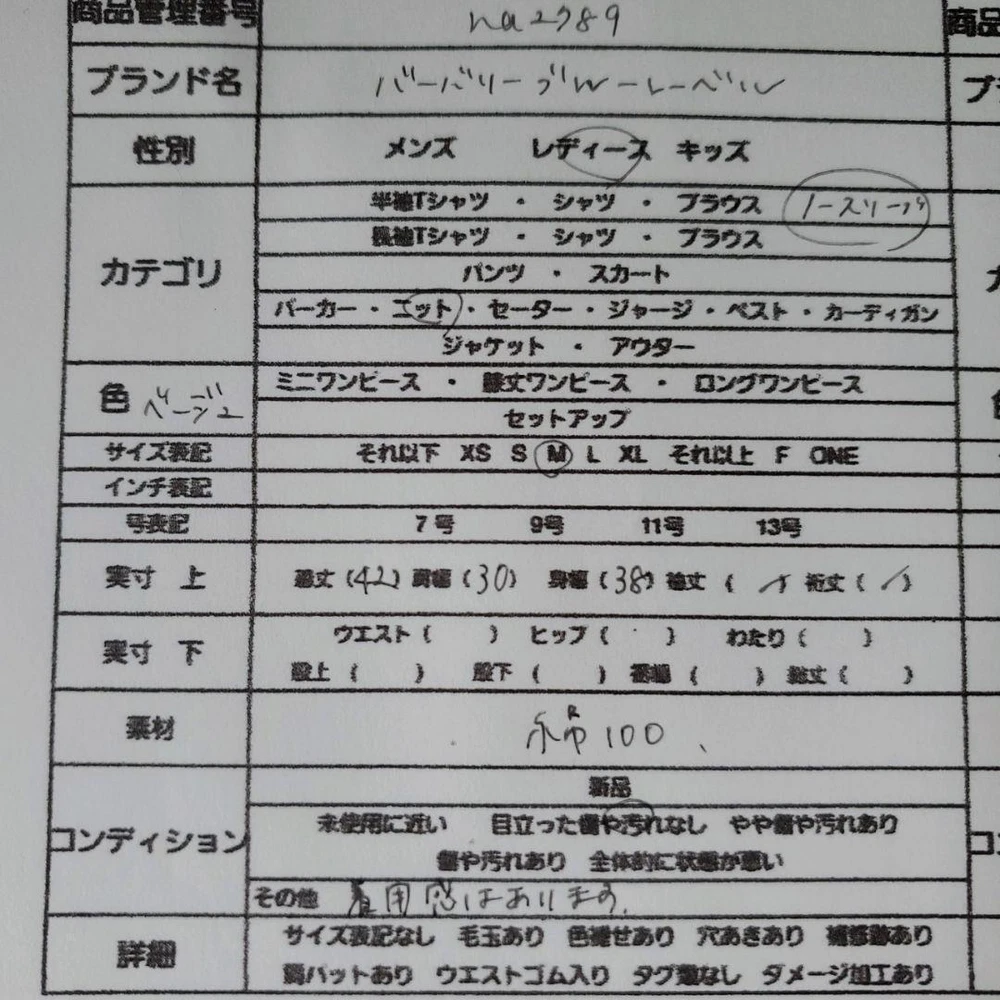 商品管理番号 na2789 商品
ブランド名 バーバリーブルーレーベル ブラ
性別 メンズ レディース キッズ
半袖Tシャツ ・ シャツ ・ ブラウス ノースリーブ
長袖Tシャツ ・ シャツ ・ ブラウス
カテゴリ パンツ ・ スカート
パーカー ・ ニット ・ セーター ・ ジャージ ・ ベスト ・ カーディガン
ジャケット ・ アウター
ミニワンピース ・ 膝丈ワンピース ・ ロングワンピース
色 ベージュ
セットアップ
サイズ表記 それ以下 XS S M L XL それ以上 F ONE
インチ表記
号表記 7号 9号 11号 13号
実寸 上 着丈 (42) 肩幅 (30) 身幅 (38) 袖丈 ( / ) 裄丈 ( / )
実寸 下 ウエスト ( ) ヒップ ( ) わたり ( )
股上 ( ) 股下 ( ) 裾幅 ( ) 総丈 ( )
素材 綿100
新品
コンディション 未使用に近い 目立った傷や汚れなし やや傷や汚れあり
傷や汚れあり 全体的に状態が悪い
その他 着用感はあります。
詳細 サイズ表記なし 毛玉あり 色褪せあり 穴あきあり 補修跡あり
肩パットあり ウエストゴム入り タグ類なし ダメージ加工あり